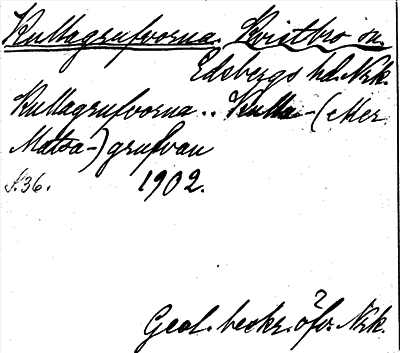 Kullagrufvorna. Kvistbro sn.
Edsbergs hd. Nrk.
Kullagrufvorna .. Kulla-(Mer
Matsa-) grufvan
S. 36. 1902.
?
Geol. beskr. öfv. Nrk.